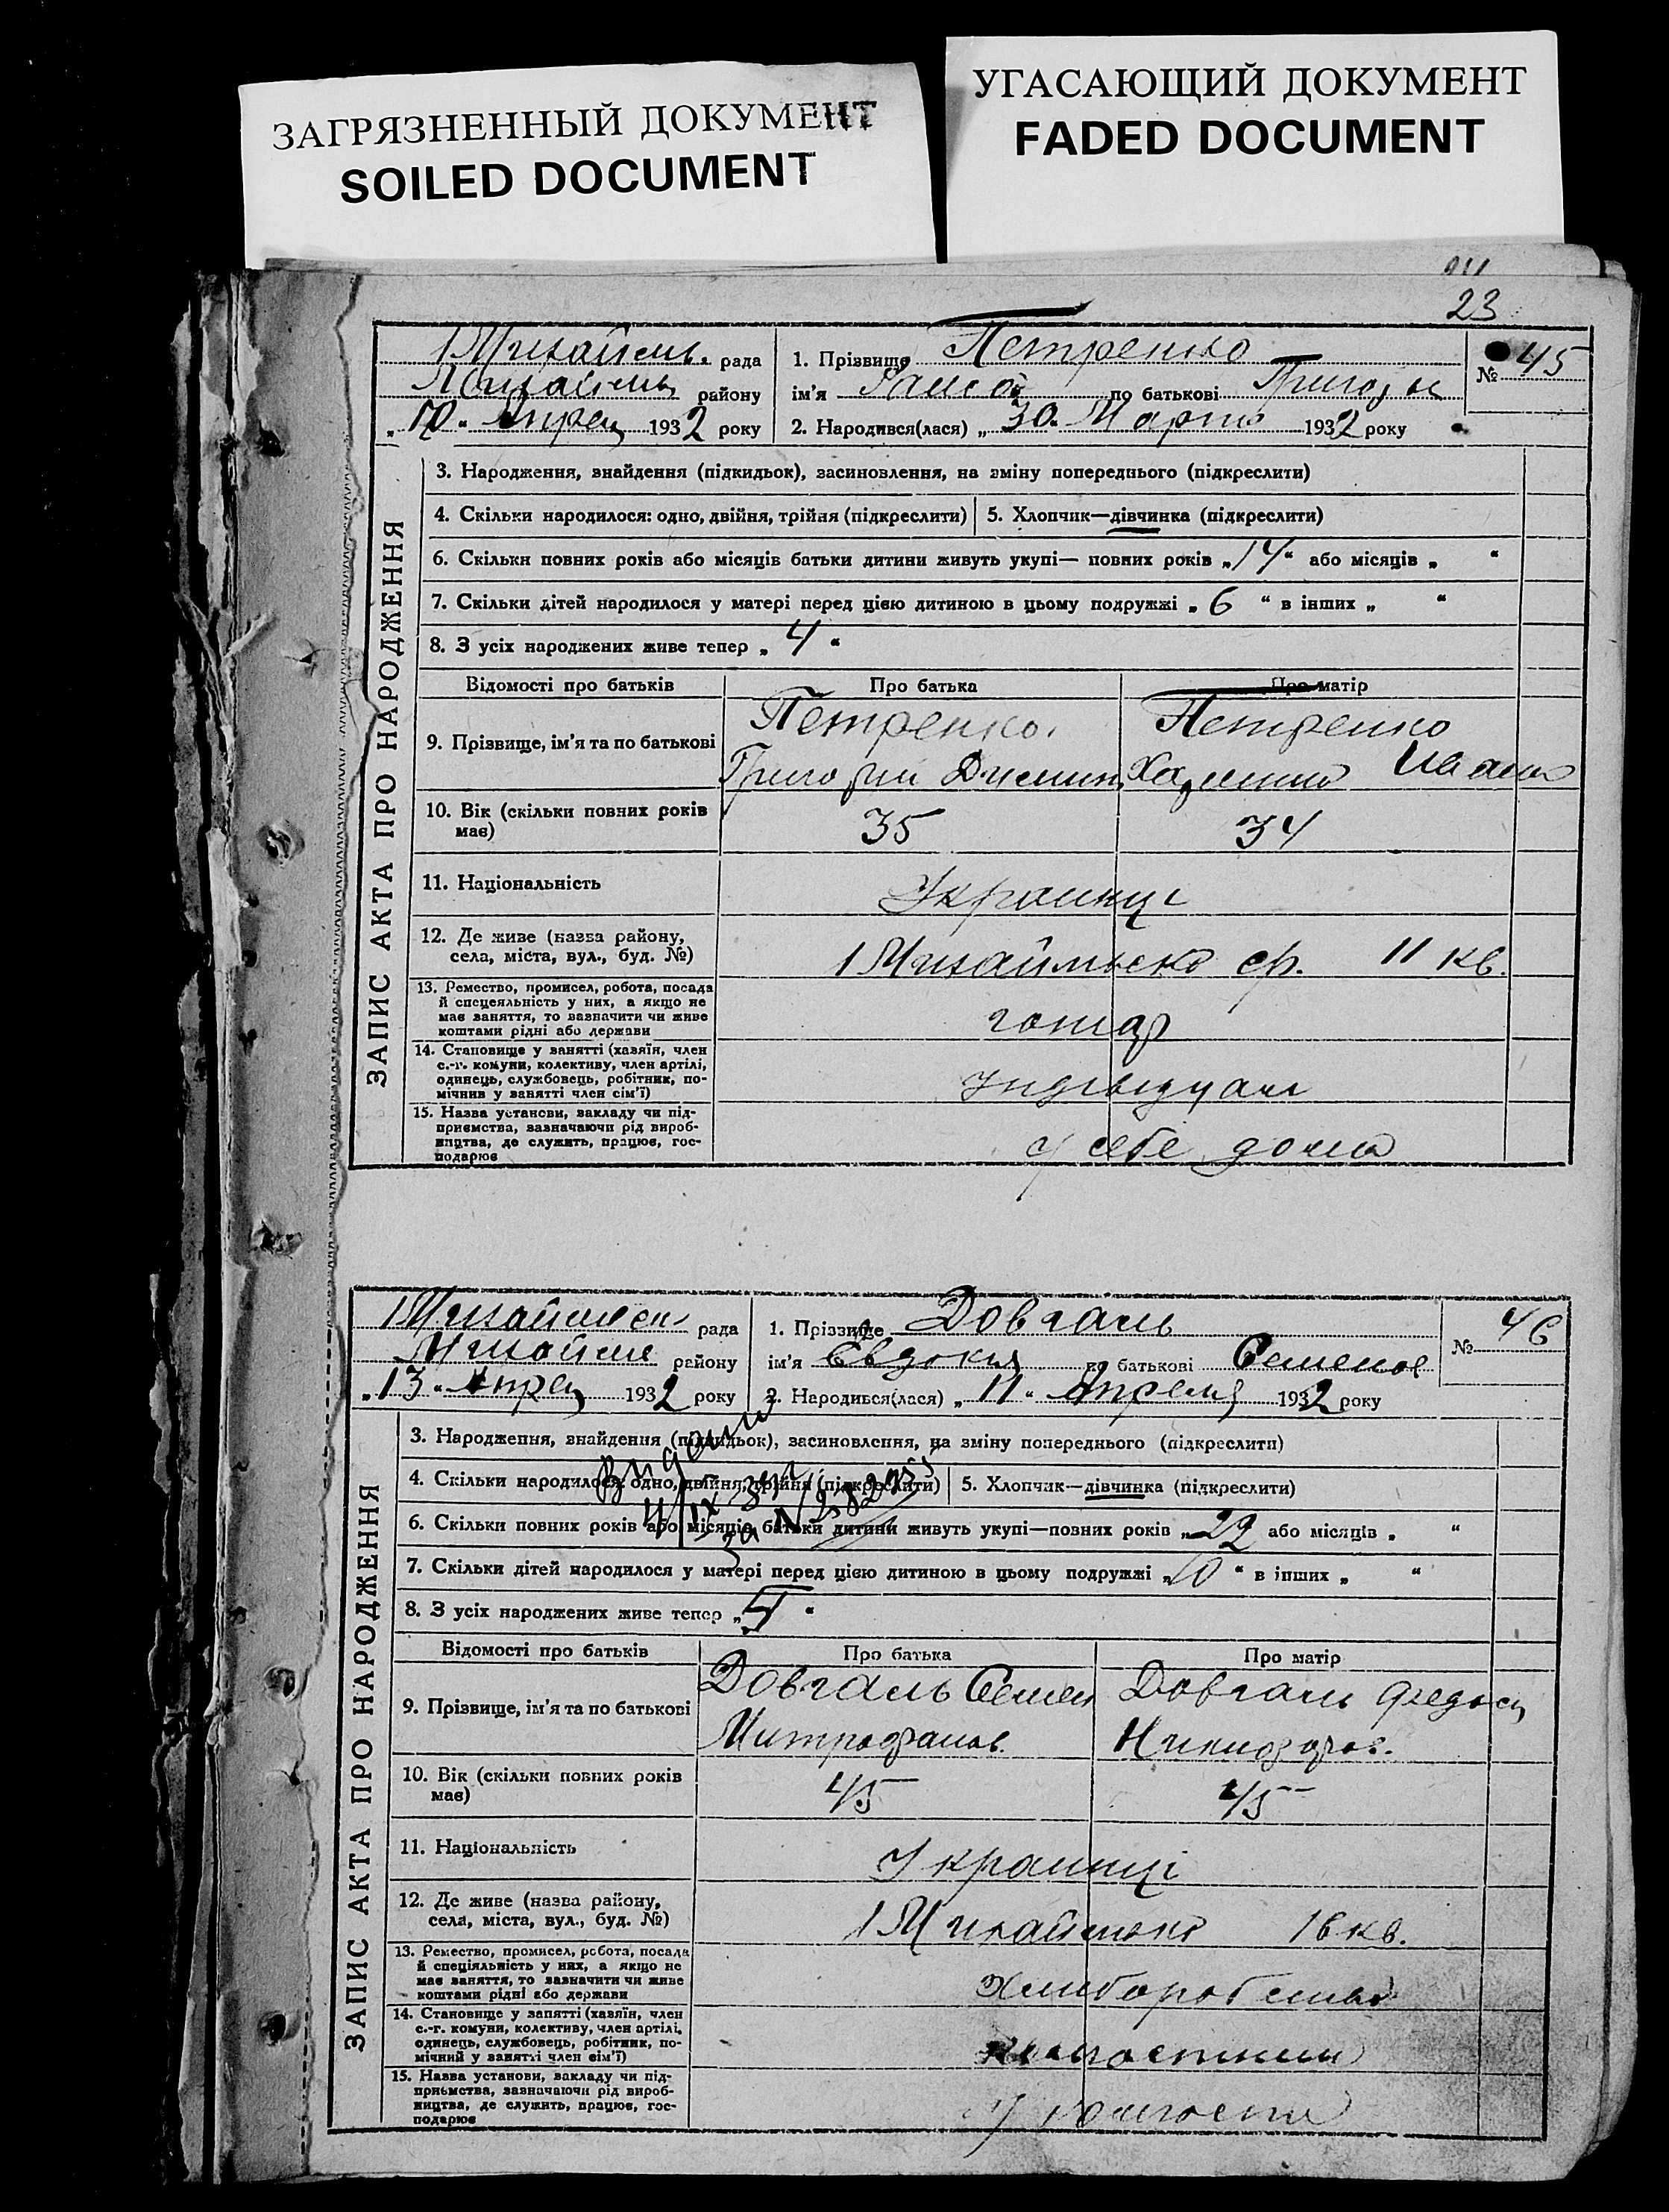 ЗАГРЯЗНЕННЫЙ ДОКУМЕНТ
SOILED DOCUMENT
УГАСАЮЩИЙ ДОКУМЕНТ
FADED DOCUMENT
23
рада
району
10 Апрел 1932 року
1. Прізвище Петренко
ім'я Раиса по батькові Григор
2. Народився(лася) „ 30 " Марта 1932 року
№ 45
ЗАПИС АКТА ПРО НАРОДЖЕННЯ
3. Народження, знайдення (підкидьок), засиновлення, на зміну попереднього (підкреслити)
4. Скільки народилося: одно, двійня, трійня (підкреслити)
5. Хлопчик—дівчинка (підкреслити)
6. Скільки повних років або місяців батьки дитини живуть укупі— повних років „ 14 " або місяців „ "
7. Скільки дітей народилося у матері перед цією дитиною в цьому подружжі „ 6 " в інших „ "
8. З усіх народжених живе тепер „ 4 "
Відомості про батьків
Про батька
Про матір
9. Прізвище, ім'я та по батькові
Петренко
Григорий
Петренко
10. Вік (скільки повних років
має)
35
34
11. Національність
Украинци
12. Де живе (назва району,
села, міста, вул., буд. №)
11 кв.
13. Ремество, промисел, робота, посада
й спецеяльність у них, а якщо не
має заняття, то зазначити чи живе
коштами рідні або держави
гончар
14. Становище у занятті (хазяїн, член
с.-г. комуни, колективу, член артілі,
одинець, службовець, робітник, по-
мічник у занятті член сім'ї)
15. Назва установи, закладу чи під-
приємства, зазначаючи рід вироб-
ництва, де служить, працює, гос-
подарює
у себе дома
рада
району
„ 13 " Апрел 1932 року
1. Прізвище Довгаль
ім'я Євдокия по батькові Семенов
2. Народився(лася) „ 11 " Апреля 1932 року
№ 46
ЗАПИС АКТА ПРО НАРОДЖЕННЯ
3. Народження, знайдення (підкидьок), засиновлення, на зміну попереднього (підкреслити)
4. Скільки народилося: одно, двійня, трійня (підкреслити)
5. Хлопчик—дівчинка (підкреслити)
6. Скільки повних років або місяців батьки дитини живуть укупі—повних років „ 22 або місяців „ "
7. Скільки дітей народилося у матері перед цією дитиною в цьому подружжі „ 10 " в інших „ "
8. З усіх народжених живе тепер „ 5 "
Відомості про батьків
Про батька
Про матір
9. Прізвище, ім'я та по батькові
Довгаль Семен
Митрофанов.
Довгаль
Никифоров.
10. Вік (скільки повних років
має)
45
45
11. Національність
Украинці
12. Де живе (назва району,
села, міста, вул., буд. №)
16 кв.
13. Ремество, промисел, робота, посада
й спеціяльність у них, а якщо не
має заняття, то зазначити чи живе
коштами рідні або держави
14. Становище у занятті (хазяїн, член
с.-г. комуни, колективу, член артілі,
одинець, службовець, робітник, по-
мічний у занятті член сім'ї)
15. Назва установи, закладу чи під-
приємства, зазначаючи рід вироб-
ництва, де служить, працює, гос-
подарює